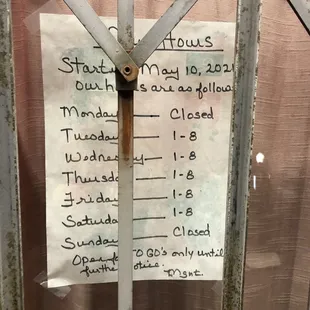 Hours
May 10, 202
our hours are as follows
Monday Closed
Tuesday 1-8
Wednesday 1-8
Thursday 1-8
Friday 1-8
Saturday 1-8
Sunday Closed
Open for TO GO's only until
further notice. Mgnt.